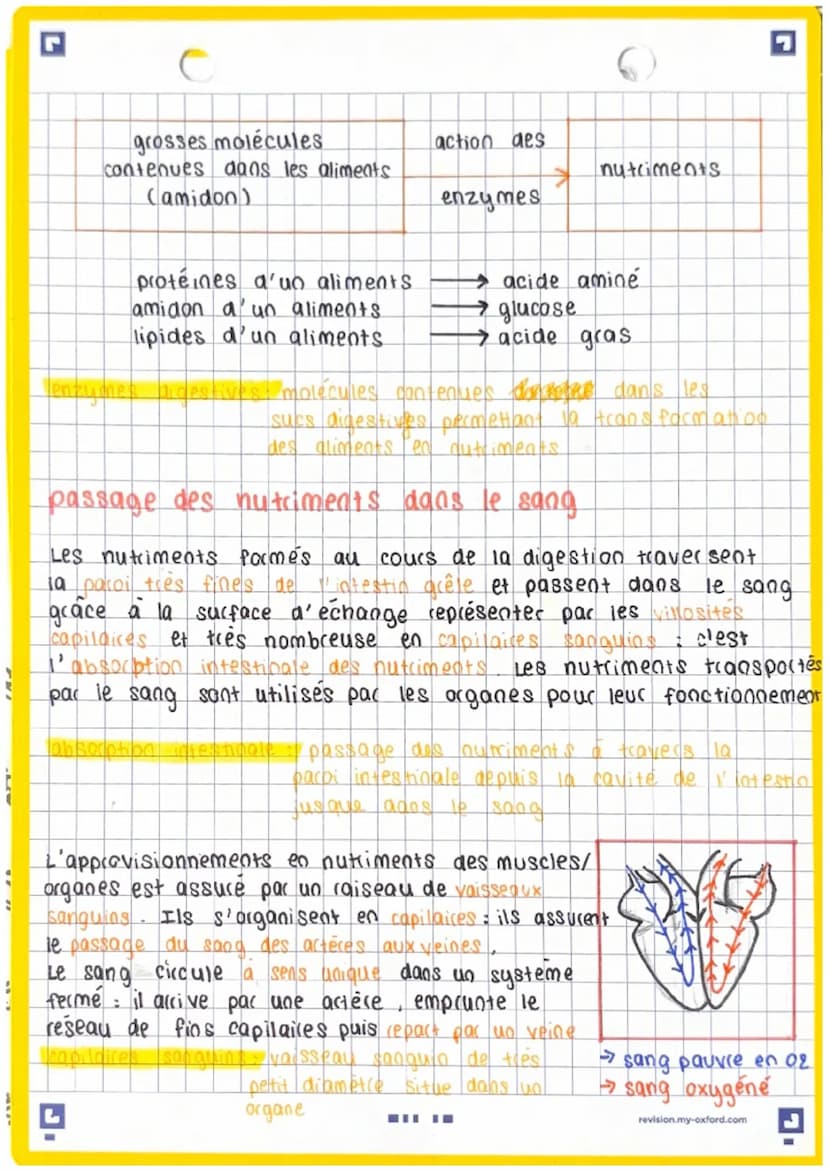 grosses molécules
contenues dans les aliments
(amidon)
action des
enzymes
nutriments
protéines d'un aliments → acide aminé
amidon d'un aliments → glucose
lipides d'un aliments → acide gras
enzymes digestives: molécules contenues dans les
sucs digestives permettant la transformation
des aliments en nutriments
passage des nutriments dans le sang
Les nutriments formés au cours de la digestion traversent
la paroi très fines de l'intestin grêle et passent dans le sang
grâce à la surface d'échange représenter par les villosités
capilaires et très nombreuse en capilaires sanguins : c'est
l'absorbtion intestinale des nutriments. Les nutriments transportés
par le sang sont utilisés par les organes pour leur fonctionnement
absorption intestinale : passage des nutriments à travers la
paroi intestinale depuis la cavité de l'intestin
jusque dans le sang
L'approvisionnements en nutriments des muscles/
organes est assuré par un raiseau de vaisseaux
sanguins. Ils s'organisent en capilaires : ils assurent
le passage du sang des artères aux veines.
Le sang circule à sens unique dans un système
fermé : il arrive par une artère, emprunte le
réseau de fins capilaires puis repart par un veine
capilaires sanguins : vaisseau sanguin de très
petit diamètre situe dans un
organe
→ sang pauvre en O2
→ sang oxygéné
revision.my-oxford.com